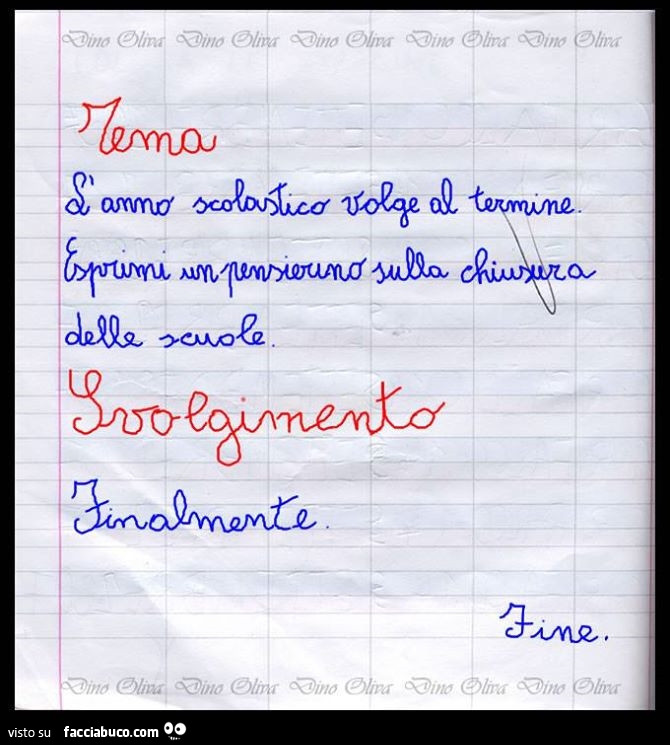 Dino Oliva Dino Oliva Dino Oliva Dino Oliva Dino Oliva
Tema
L'anno scolastico volge al termine.
Esprimi un pensierino sulla chiusura
delle scuole.
Svolgimento
Finalmente.
Fine.
Dino Oliva Dino Oliva Dino Oliva Dino Oliva Dino Oliva
visto su facciabuco.com